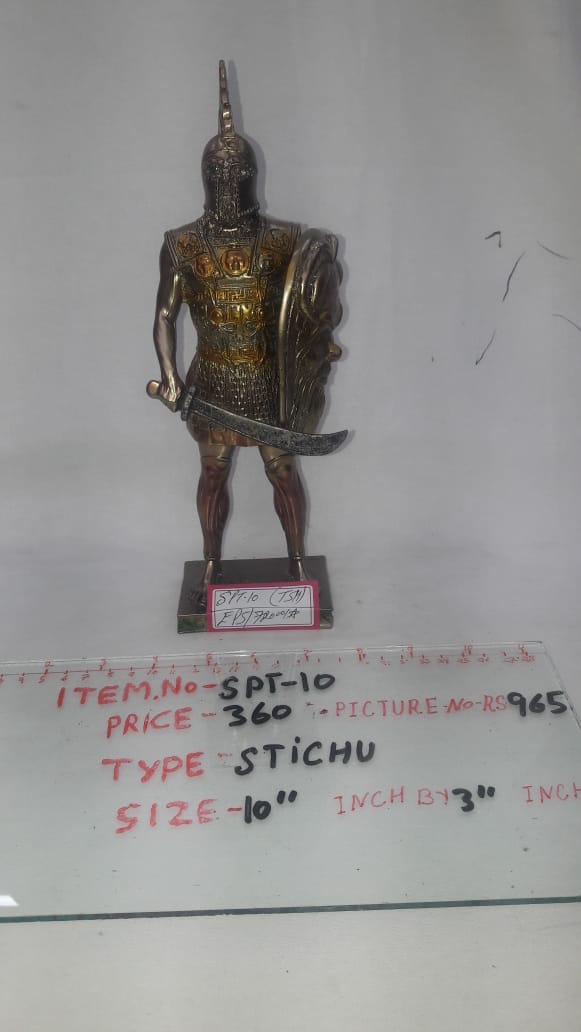 SPT-10 (TSM)
ITEM.No-SPT-10
PRICE-360 PICTURE-No-RS965
TYPE-STiCHU
SIZE-10" INCH BY 3" INCH